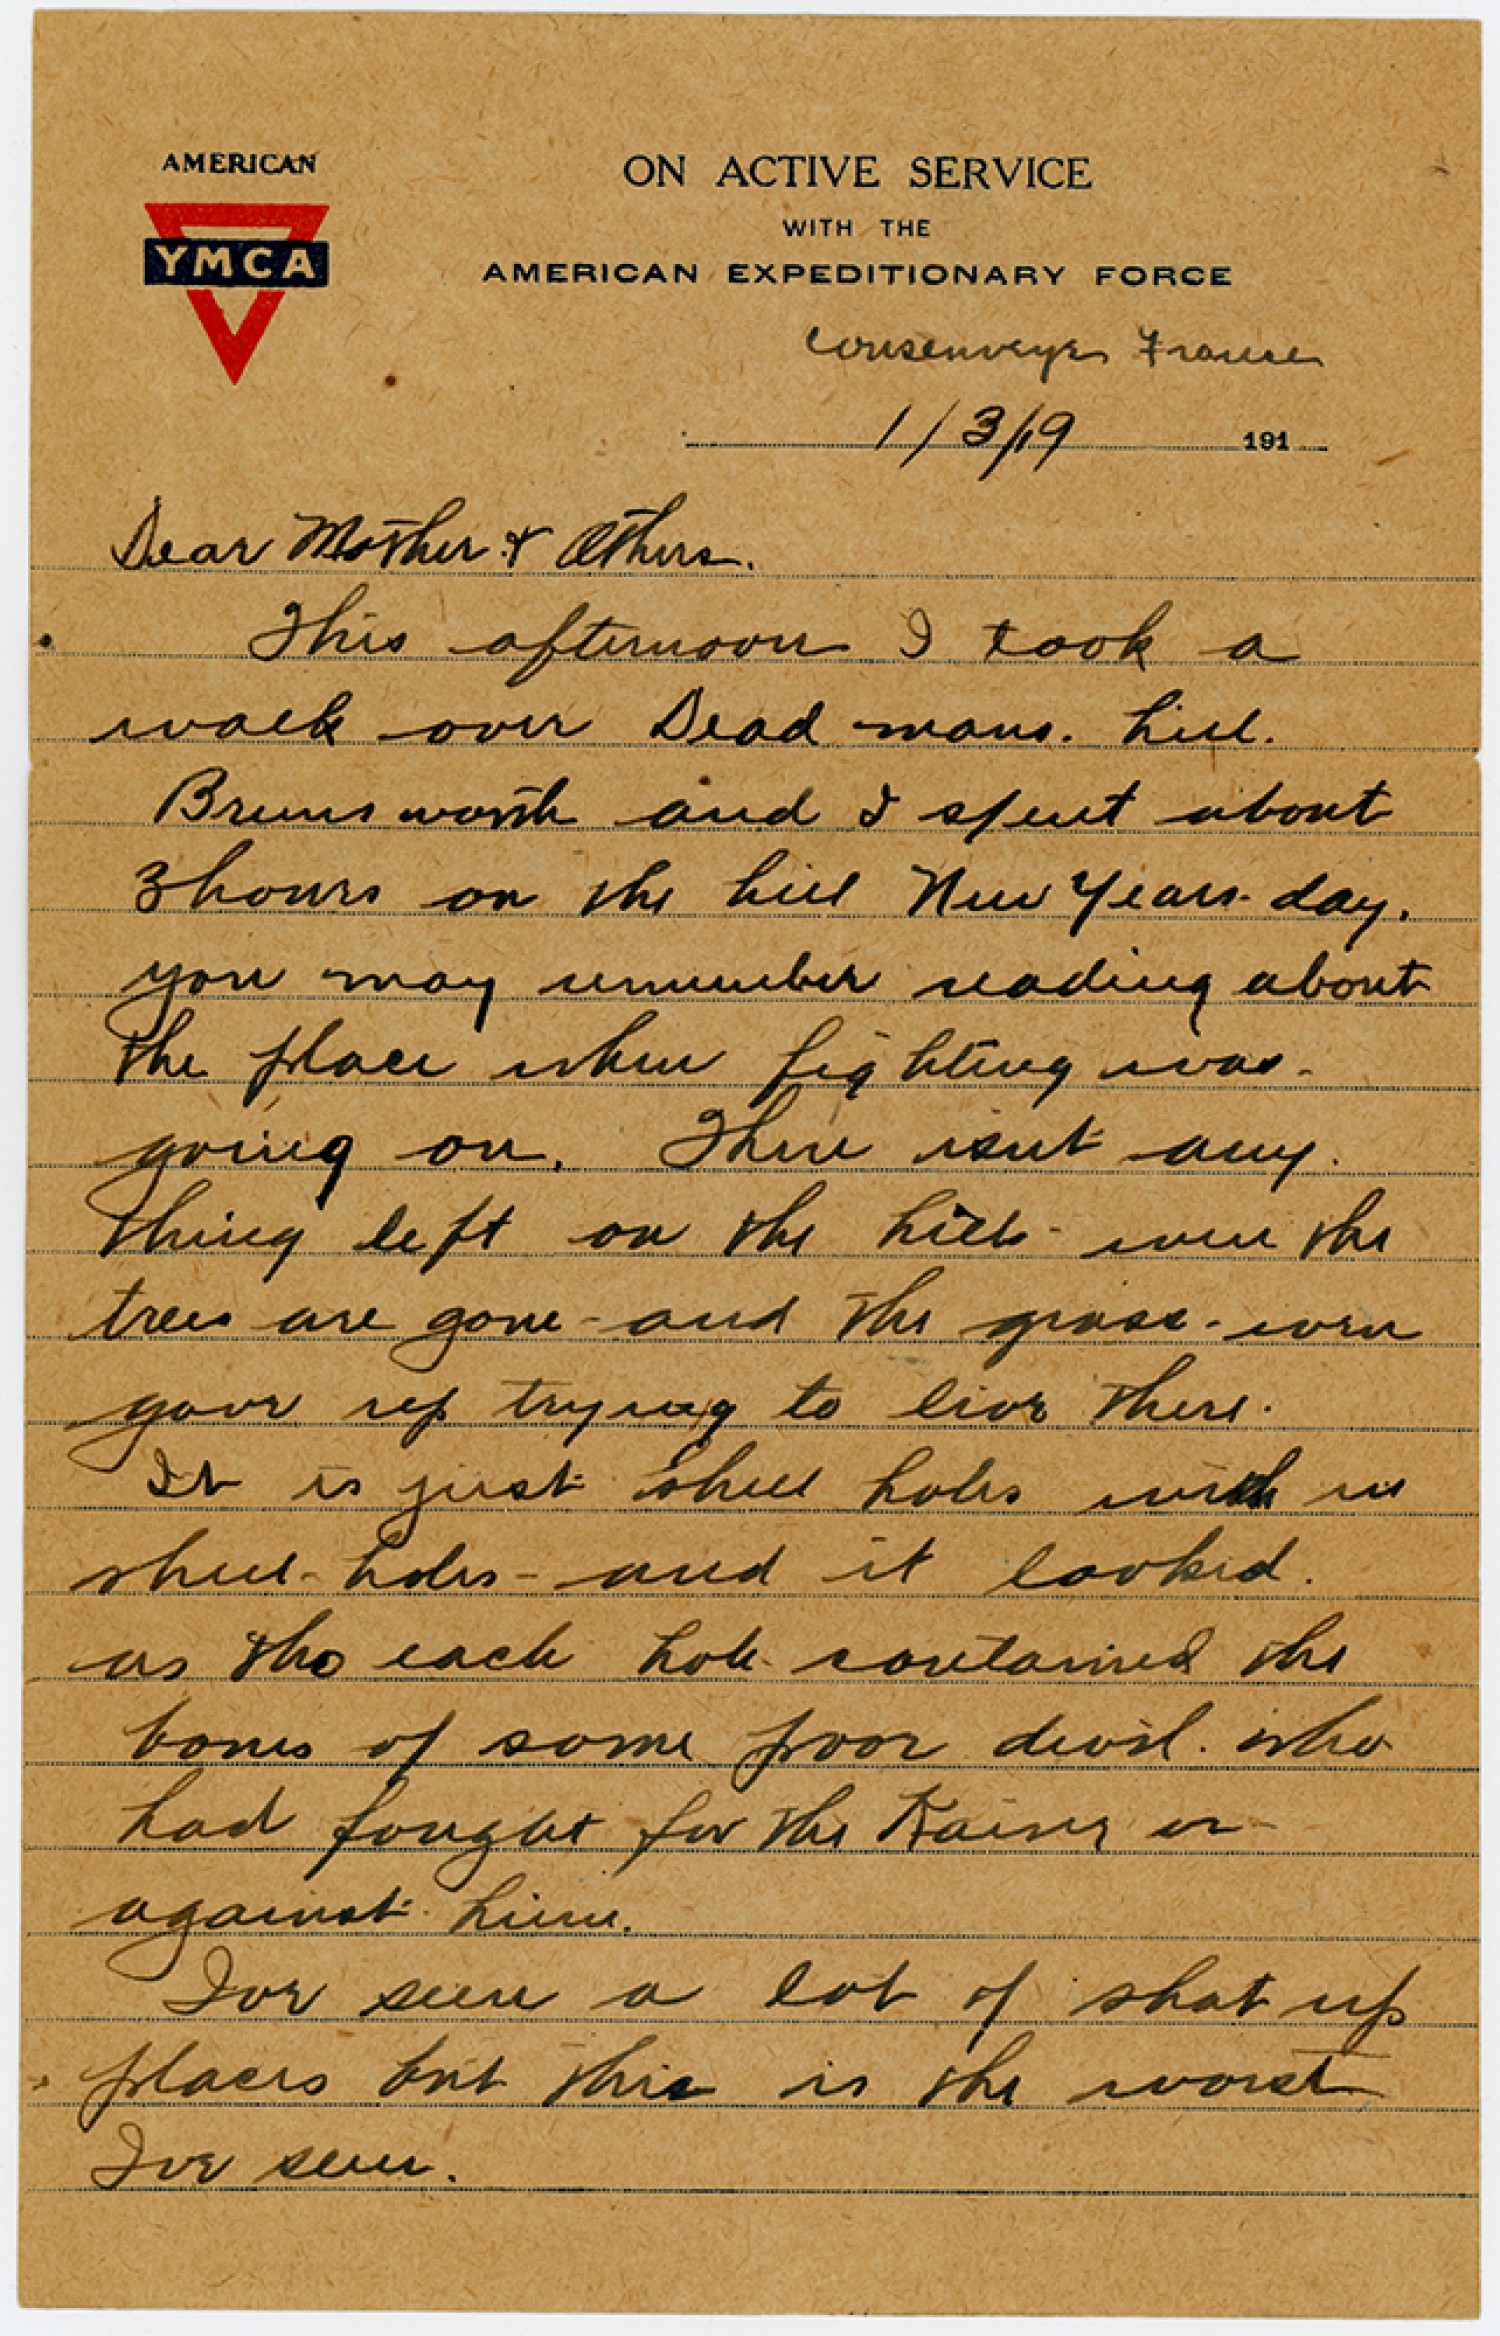 AMERICAN
YMCA
ON ACTIVE SERVICE
WITH THE
AMERICAN EXPEDITIONARY FORCE
Consenveye France
1/3/19 191
Dear Mother & Others.
This afternoon I took a
walk over Dead mans. hill.
Brunsworth and I spent about
3 hours on the hill New Years day.
you may remember reading about
the place when fighting was
going on. There isnt any
thing left on the hill - even the
trees are gone - and the grass - even
gave up trying to live there.
It is just shell holes with in
shell - holes - and it looked.
as tho each hole contained the
bones of some poor devil. who
had fought for the Kaiser or
against him.
Ive seen a lot of shot up
places but this is the worst
Ive seen.